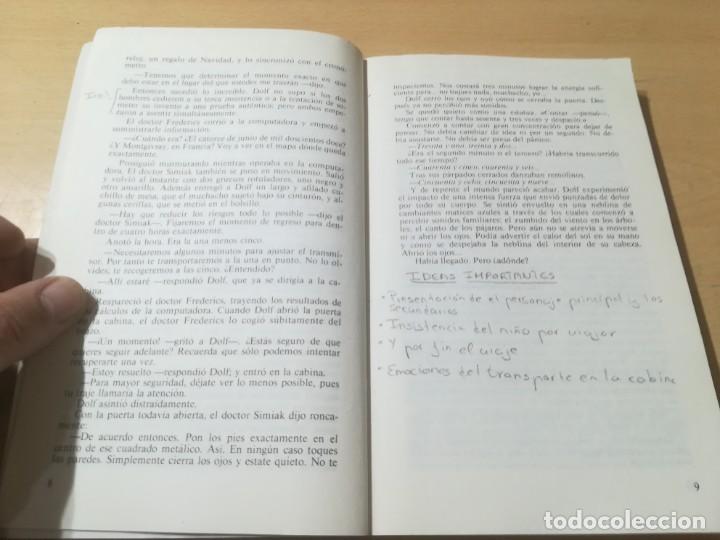 reloj, un regalo de Navidad, y lo sincronizó con el cronó-
metro.
—Tenemos que determinar el momento exacto en que
debo estar en el lugar del que ustedes me traerán —dijo.
Entonces sucedió lo increíble. Dolf no supo si los dos
hombres cedieron a su terca insistencia o a la tentación de so-
meter su invento a una prueba auténtica; pero ambos empe-
zaron a asentir simultáneamente.
El doctor Frederics corrió a la computadora y empezó a
suministrarle información.
—¿Cuándo era? ¿El catorce de junio de mil doscientos doce?
¿Y Montgivray, en Francia? Voy a ver en el mapa dónde queda
exactamente.
Prosiguió murmurando mientras operaba en la computa-
dora. El doctor Simiak también se puso en movimiento. Salió
y volvió al instante con dos gruesos rotuladores, uno negro y
otro amarillo. Además entregó a Dolf un largo y afilado cu-
chillo de mesa, que el muchacho sujetó bajo su cinturón, y al-
gunas cerillas, que se metió en el bolsillo.
—Hay que reducir los riesgos todo lo posible —dijo el
doctor Simiak—. Fijaremos el momento de regreso para den-
tro de cuatro horas exactamente.
Anotó la hora. Era la una menos cinco.
—Necesitaremos algunos minutos para ajustar el transmi-
sor. Por tanto te transportaremos a la una en punto. No lo ol-
vides, te recogeremos a las cinco. ¿Entendido?
—Allí estaré —respondió Dolf, que ya se dirigía a la ca-
bina.
Reapareció el doctor Frederics, trayendo los resultados de
cálculos de la computadora. Cuando Dolf abrió la puerta
la cabina, el doctor Frederics lo cogió súbitamente del
brazo.
—¡Un momento! —gritó a Dolf—. ¿Estás seguro de que
quieres seguir adelante? Recuerda que sólo podemos intentar
recuperarte una vez.
—Estoy resuelto —respondió Dolf; y entró en la cabina.
—Para mayor seguridad, déjate ver lo menos posible, pues
tu traje llamaría la atención.
Dolf asintió distraídamente.
Con la puerta todavía abierta, el doctor Simiak dijo ronca-
mente:
—De acuerdo entonces. Pon los pies exactamente en el
centro de ese cuadrado metálico. Así. En ningún caso toques
las paredes. Simplemente cierra los ojos y estate quieto. No te
8
impacientes. Nos costará tres minutos lograr la energía sufi-
ciente para... no toques nada, muchacho, yo...
Dolf cerró los ojos y oyó cómo se cerraba la puerta. Des-
pués ya no percibió más sonidos.
Se quedó quieto como una estatua. «Contar —pensó—,
tengo que contar hasta sesenta y tres veces y despacio.»
Comenzó a contar con gran concentración para dejar de
pensar. No debía cambiar de idea ni en aquel segundo. No de-
bía moverse. No debía ser presa del pánico.
—Treinta y uno, treinta y dos...
Era el segundo minuto o el tercero? ¿Habría transcurrido
todo ese tiempo?
—Cuarenta y cinco, cuarenta y seis...
Tras sus párpados cerrados danzaban remolinos.
—Cincuenta y ocho, cincuenta y nueve...
Y de repente el mundo pareció acabar. Dolf experimentó
el impacto de una intensa fuerza que envió punzadas de dolor
por todo su cuerpo. Se sintió envuelto en una neblina de
cambiantes matices azules a través de los cuales comenzó a
percibir sonidos familiares: el zumbido del viento en los árbo-
les, el canto de los pájaros. Pero aún no se atrevía a moverse
ni a abrir los ojos. Podía advertir el calor del sol en su mano
y cómo se despejaba la neblina del interior de su cabeza.
Abrió los ojos...
Había llegado. Pero ¿adónde?
IDEAS IMPORTANTES
• Presentación de el personaje principal y los
secundarios
• Insistencia del niño por viajar
• Y por fin el viaje
• Emociones del transporte en la cabina
9
todocoleccion.net